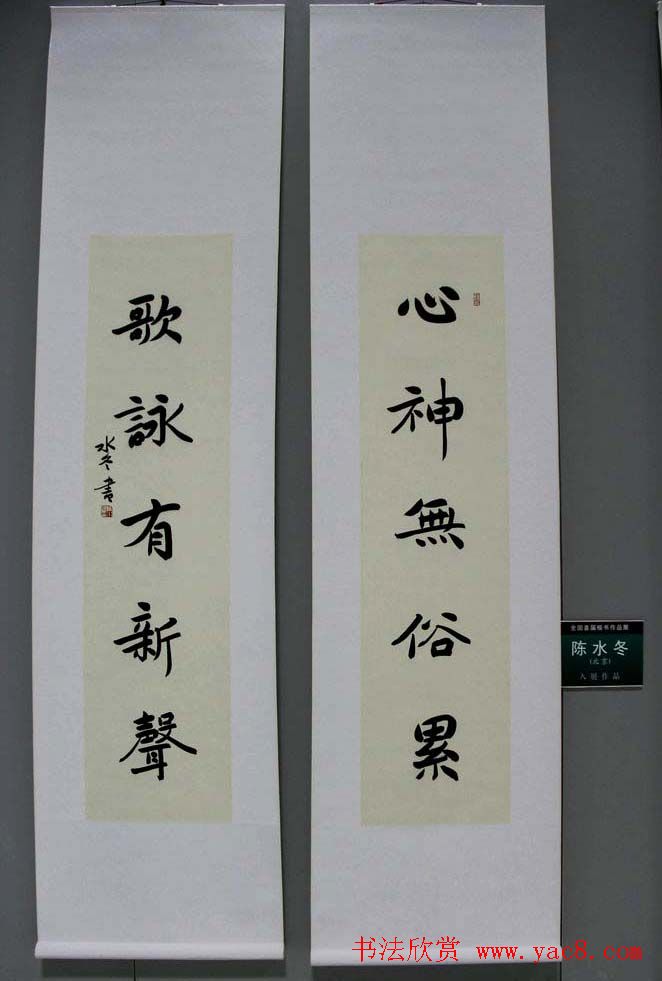 心神無俗累
歌詠有新聲
水冬書
全国首届楹书作品展
陈水冬
(北京)
入展作品
书法欣赏 www.yac8.com